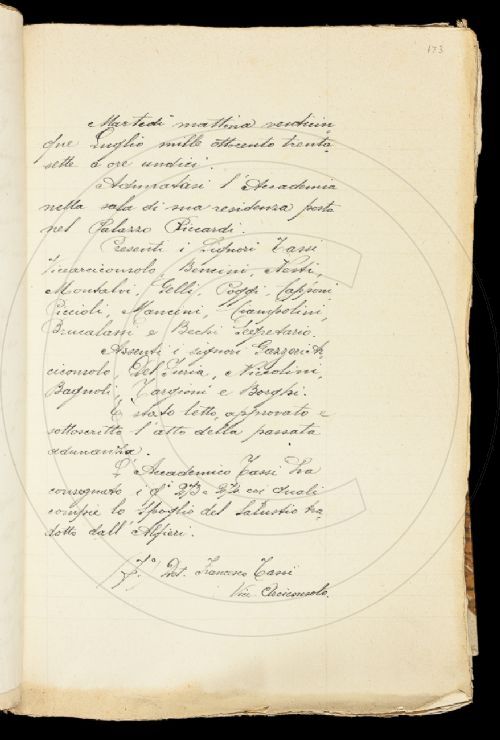 173
Martedì mattina venticin-
que Luglio mille ottocento trenta-
sette a ore undici.
Adunatasi l'Accademia
nella sala di sua residenza posta
nel Palazzo Riccardi.
Presenti i Signori Tassi
Vicearciconsolo, Bencini, Nesti,
Montalvi, Gelli, Poggi, Capponi
Piccioli, Mancini, Ciampolini,
Brucalassi e Becchi Segretario.
Assenti i signori Gazzeri Ar-
ciconsolo, Del Furia, Niccolini,
Bagnoli, Targioni e Borghi.
È stato letto, approvato e
sottoscritto l'atto della passata
adunanza.
L'Accademico Tassi ha
consegnato i f.i 23 e 24 coi quali
compie lo Spoglio del Salustio tra-
dotto dall'Alfieri.
Dot. Francesco Tassi
Vice Arciconsolo.